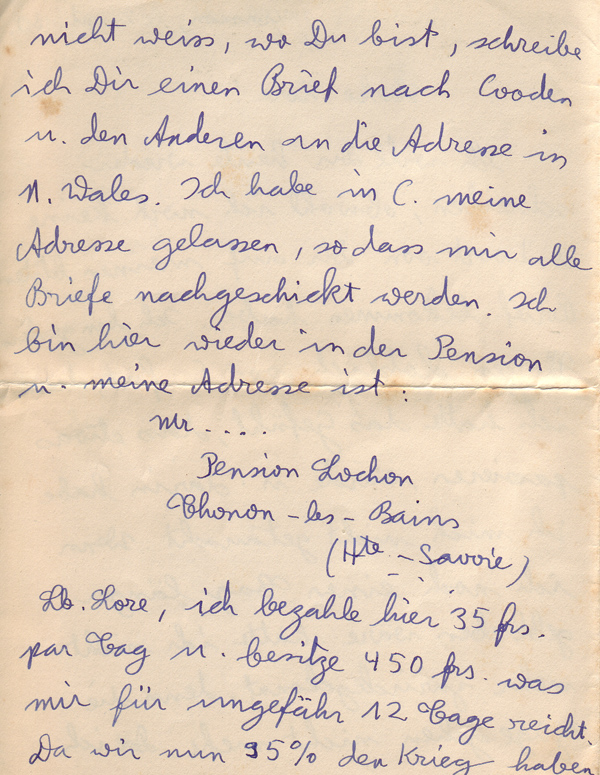 nicht weiss, wo Du bist, schreibe
ich Dir einen Brief nach Cooden
u. den Anderen an die Adresse in
N. Wales. Ich habe in C. meine
Adresse gelassen, so dass mir alle
Briefe nachgeschickt werden. Ich
bin hier wieder in der Pension
u. meine Adresse ist:
Mr....
Pension Lochon
Thonon-les-Bains
(Hte-Savoie)
Lb. Lore, ich bezahle hier 35 frs.
par Tag u. besitze 450 frs. was
mir für ungefähr 12 Tage reicht.
Da wir nun 95% den Krieg haben